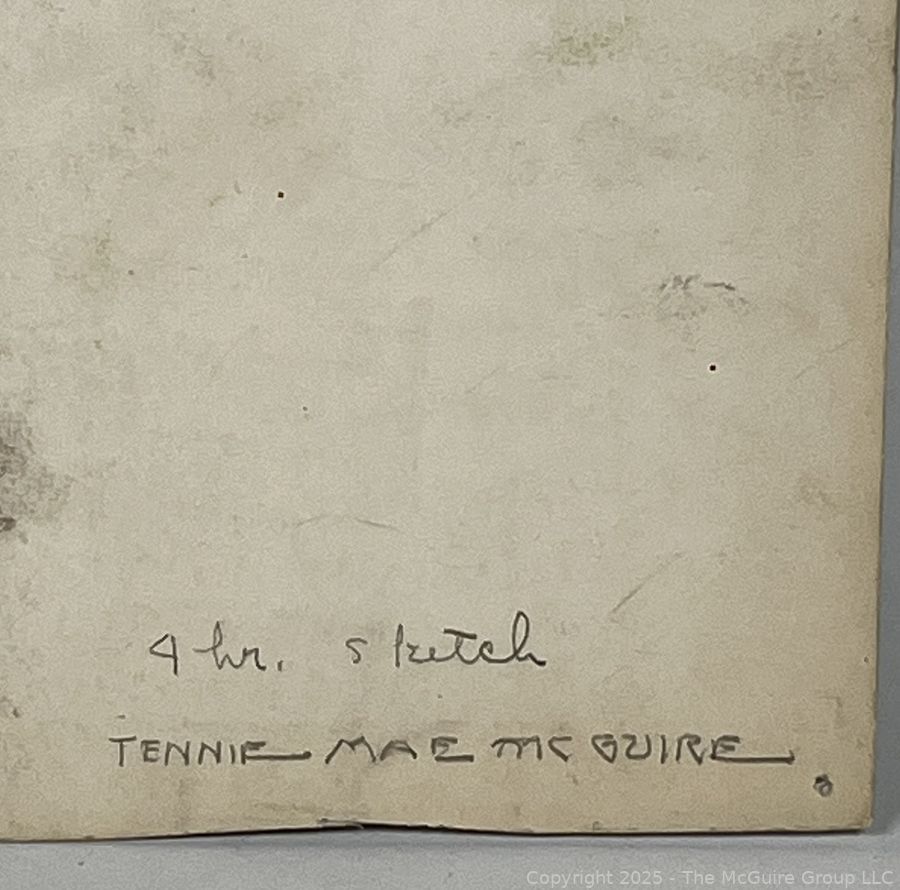 4 hr. sketch
TENNIE MAE MCGUIRE
Copyright 2025 - The McGuire Group LLC